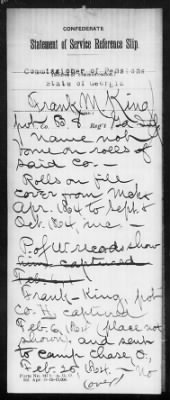 CONFEDERATE
Statement of Service Reference Slip.
Commissioner of Pensions
State of Georgia
Frank M. King
pvt Co.
name not
found on rolls of
said Co. —
Rolls on file
cover from
Apr. /64 to Sept &
Oct. /64, inc. —
P. of W. recds show
captured
Feb.
Frank — King, pvt
Co. captured
Feb. 6, /64 place not
shown, and sent
to Camp Chase O,
Feb. 20 /64. — No
(over)